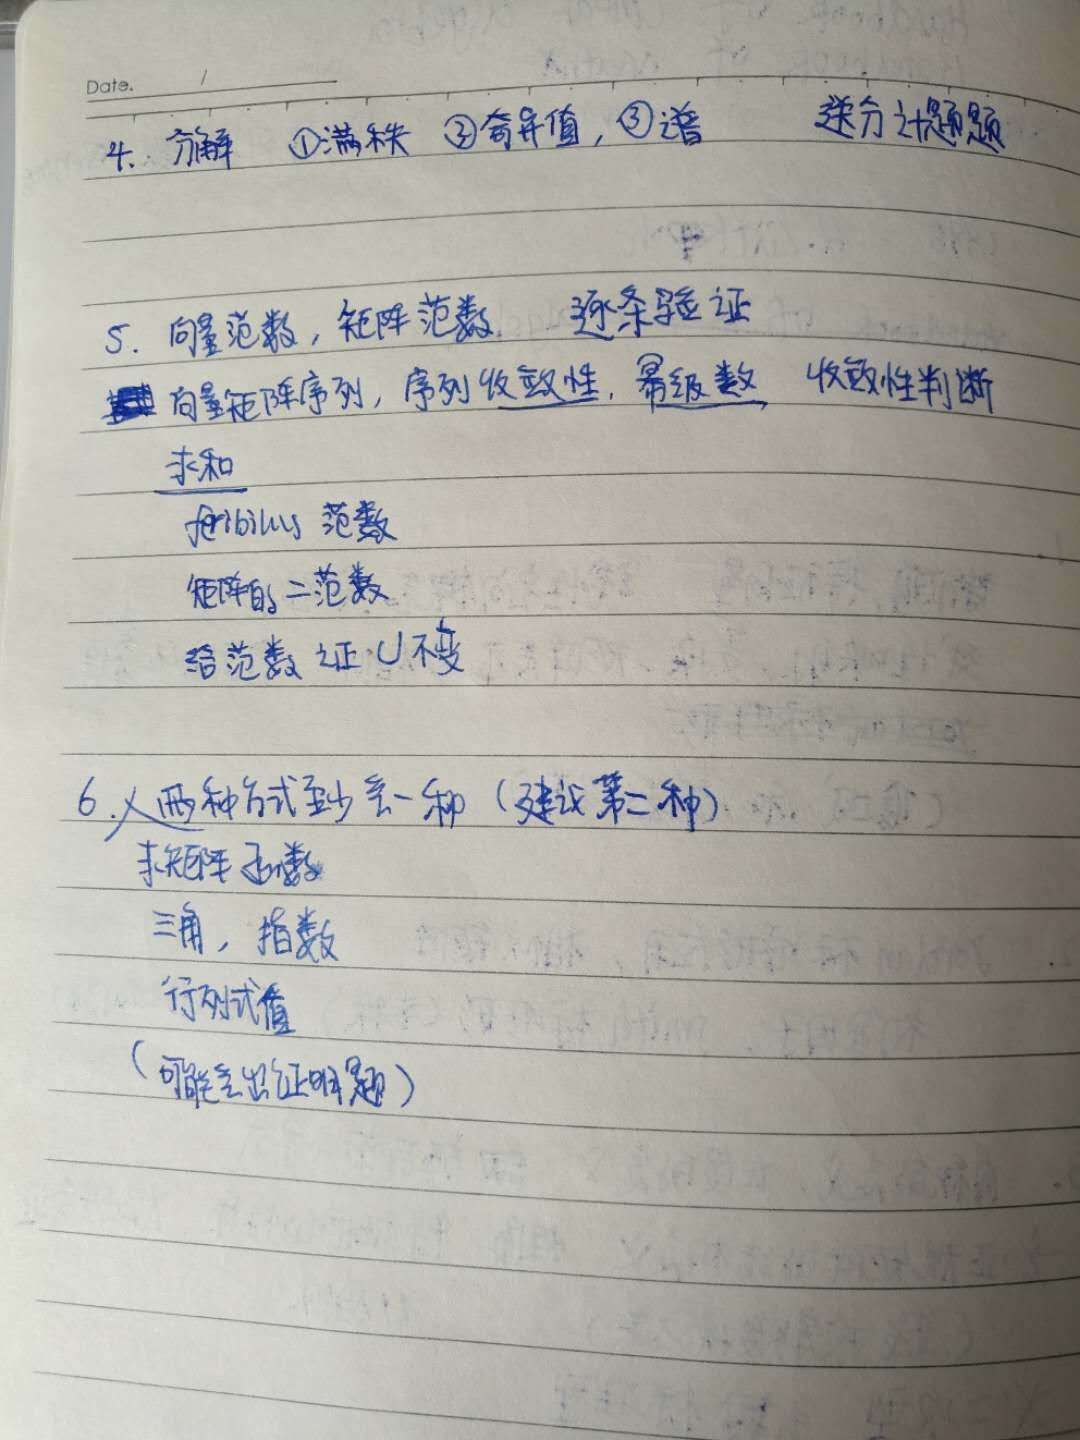 Date. /
4. 分解 ①满秩 ②奇异值, ③谱 送分计算题
5. 向量范数, 矩阵范数 逐条验证
向量矩阵序列, 序列收敛性, 幂级数 收敛性判断
求和
范数
矩阵的二范数
给范数 证 U不变
6. 两种方式至少会一种 (建议第二种)
求矩阵函数
三角, 指数
行列式值
(可能会出证明题)